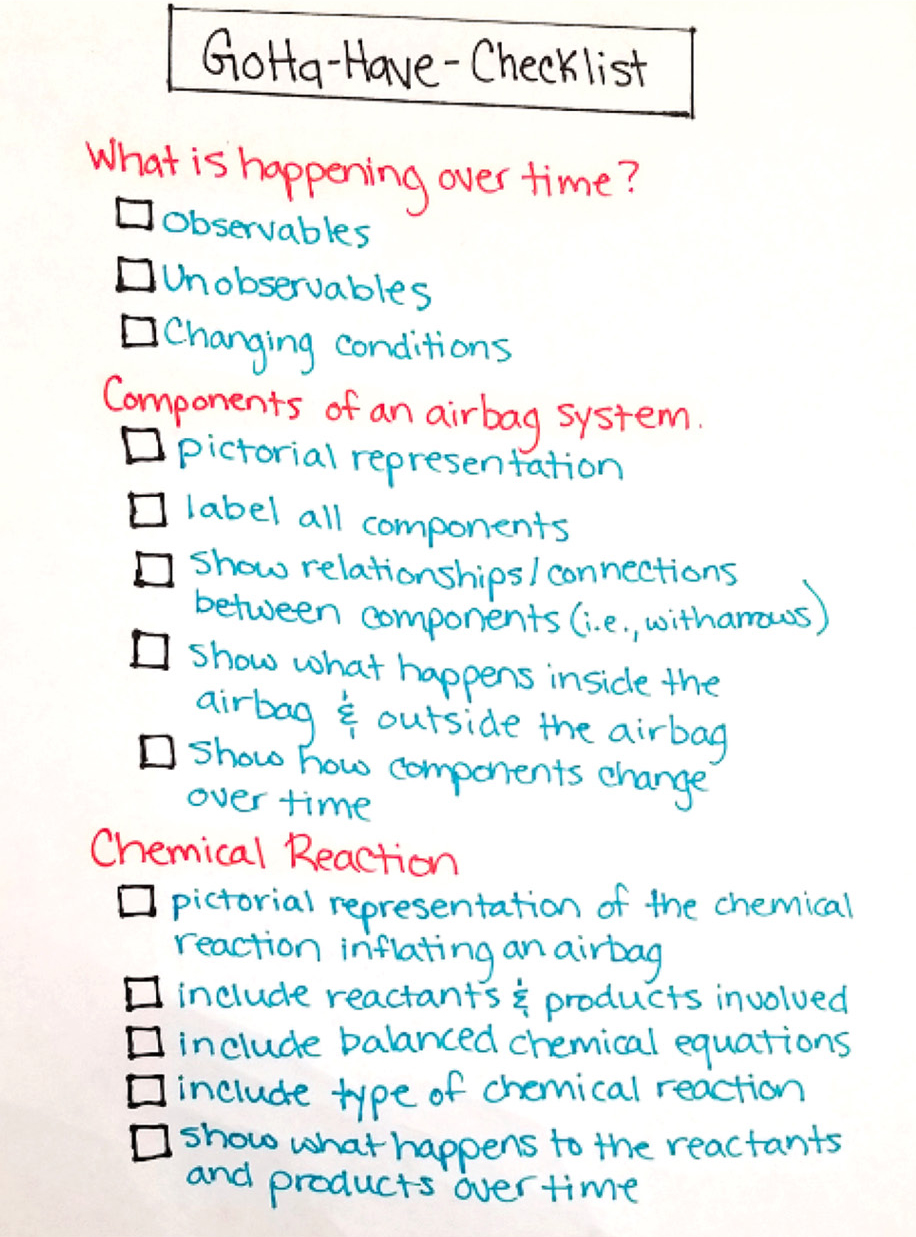 Gotta-Have-Checklist
What is happening over time?
Observables
Unobservables
Changing conditions
Components of an airbag system.
pictorial representation
label all components
show relationships/connections
between components (i.e., with arrows)
show what happens inside the
airbag & outside the airbag
show how components change
over time
Chemical Reaction
pictorial representation of the chemical
reaction inflating an airbag
include reactants & products involved
include balanced chemical equations
include type of chemical reaction
show what happens to the reactants
and products over time